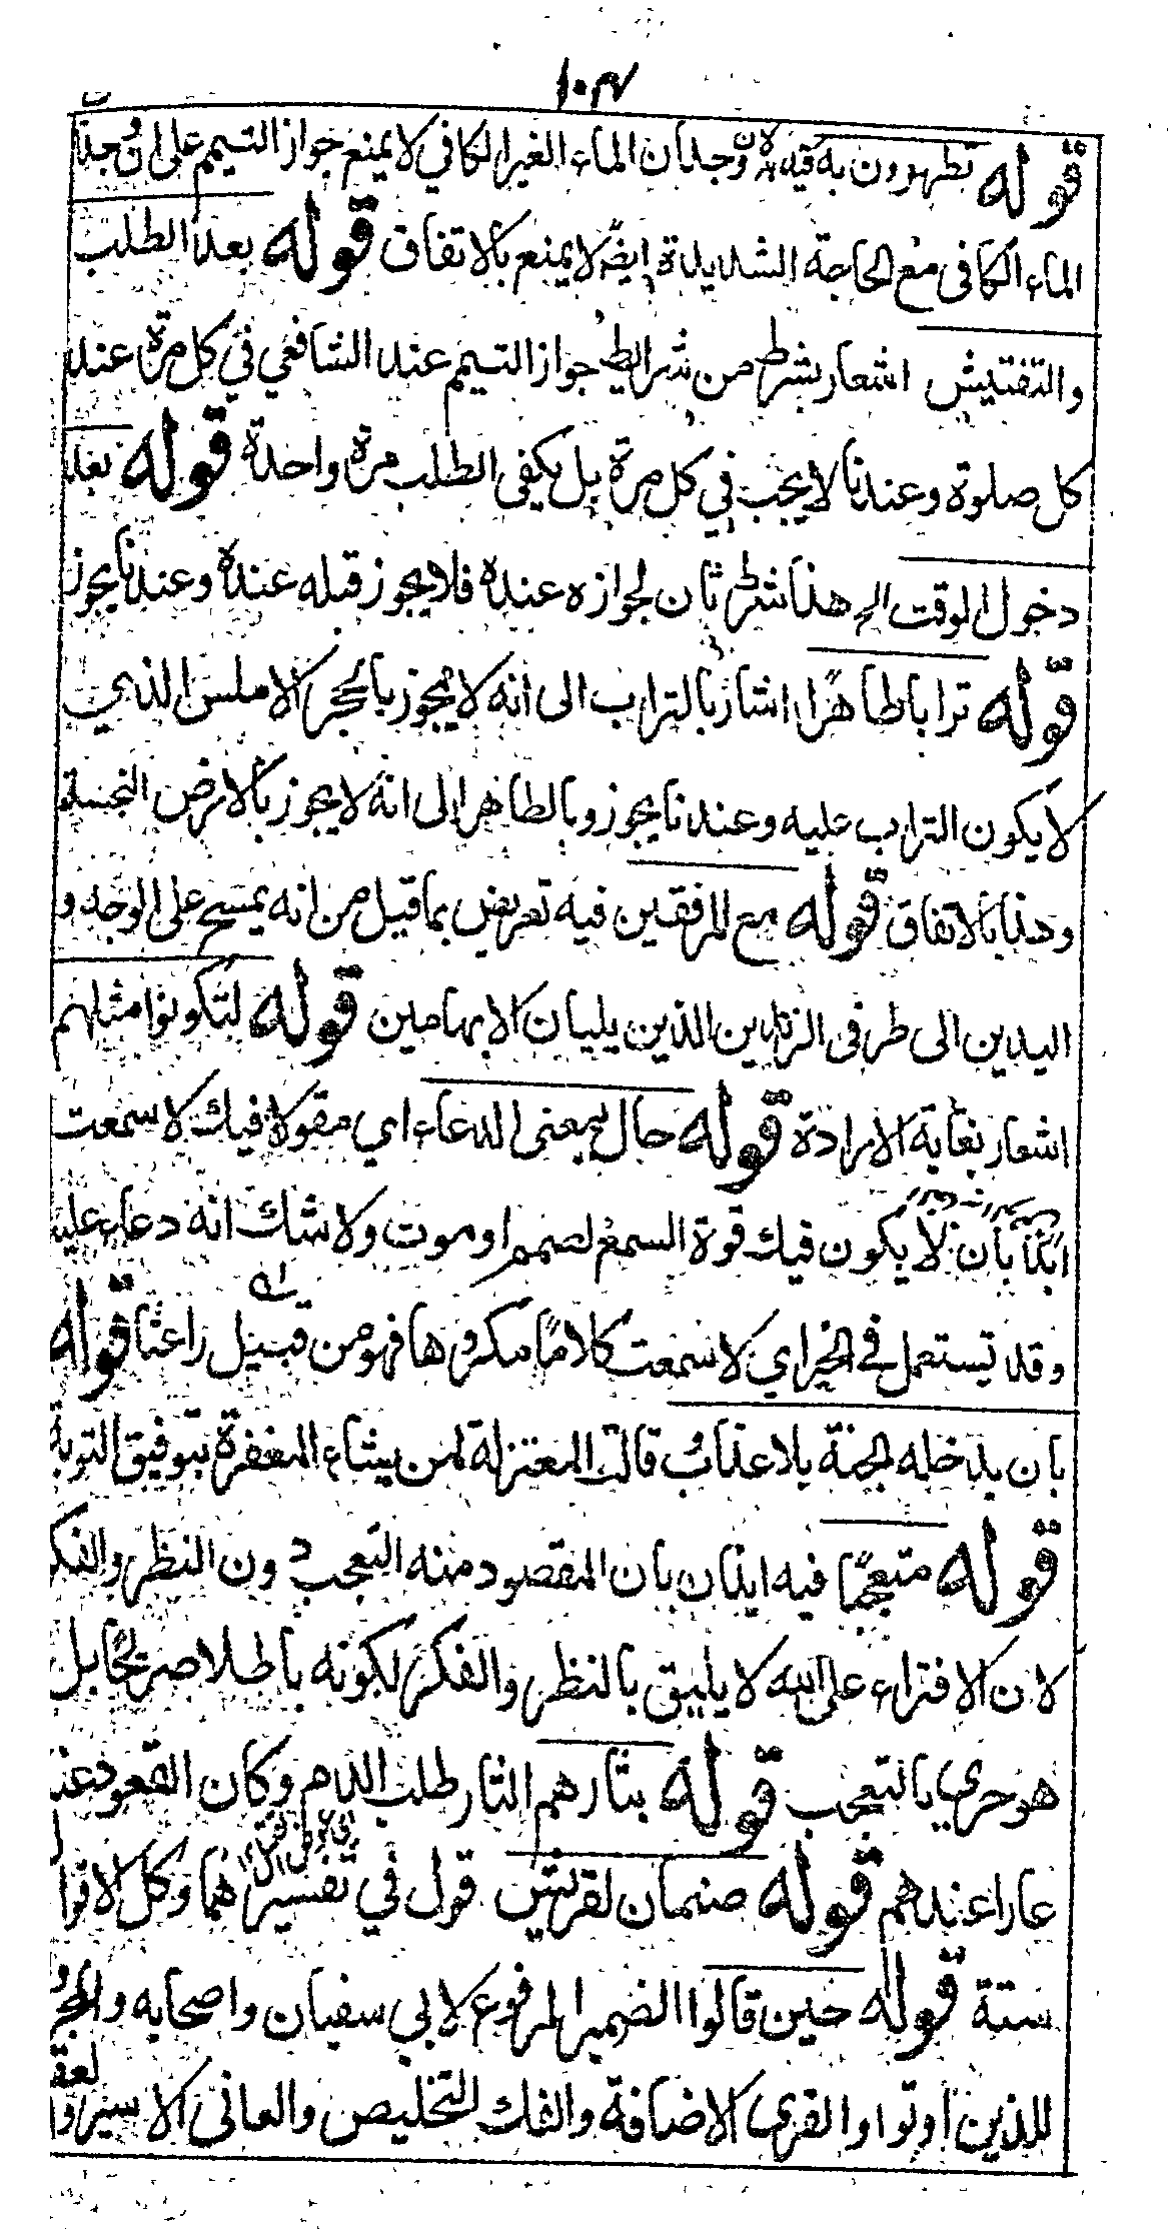 ١٠٣٧
قوله تطهرون به فيه لان وجدان الماء الغير الكافي لا يمنع جواز التيمم على ان وجدان
الماء الكافى مع الحاجة الشديدة ايضا لا يمنع بالاتفاق قوله بعد الطلب
والتفتيش اشعار بشرط من شرايط جواز التيمم عند الشافعي في كل مرة عند
كل صلوة وعندنا لا يجب في كل مرة بل يكفى الطلب مرة واحدة قوله بعد
دخول الوقت الخ هذا شرط ثان لجوازه عنده فلا يجوز قبله عنده وعندنا يجوز
قوله ترابا طاهرا اشار بالتراب الى انه لا يجوز بالحجر الاملس الذي
لا يكون التراب عليه وعندنا يجوز وبالطاهر الى انه لا يجوز بالارض النجسة
وهذا بالاتفاق قوله مع المرفقين فيه تعريض بما قيل من انه يمسح على الوجه و
اليدين الى طرفى الزندين الذين يليان الابهامين قوله لتكونوا مثلهم
اشعار بغاية الارادة قوله حال بمعنى الدعاء اي مقولا فيك لا سمعت
ابدا بان لا يكون فيك قوة السمع لصمم او موت ولا شك انه دعاء عليه
وقد تستعمل في الخير اي لا سمعت كلاما مكروها فهو من قبيل راعنا قوله
بان يدخله الجنة بلا عذاب قالت المعتزلة لمن يشاء المغفرة بتوفيق التوبة
قوله متعجبا فيه ايذان بان المقصود منه التعجب دون النظر والفكر
لان الافتراء على الله لا يليق بالنظر والفكر لكونه باطلا صريحا بل
هو حري بالتعجب قوله بثارهم الثار طلب الدم وكان القعود عنه
عارا عندهم قوله صنمان لقريش قول في تفسيرهما وكل الاقوال
ستة قوله حين قالوا الضمير المرفوع لابي سفيان واصحابه والمجرور
للذين اوتوا والقرى الاضافة والفك التخليص والعانى الاسير و